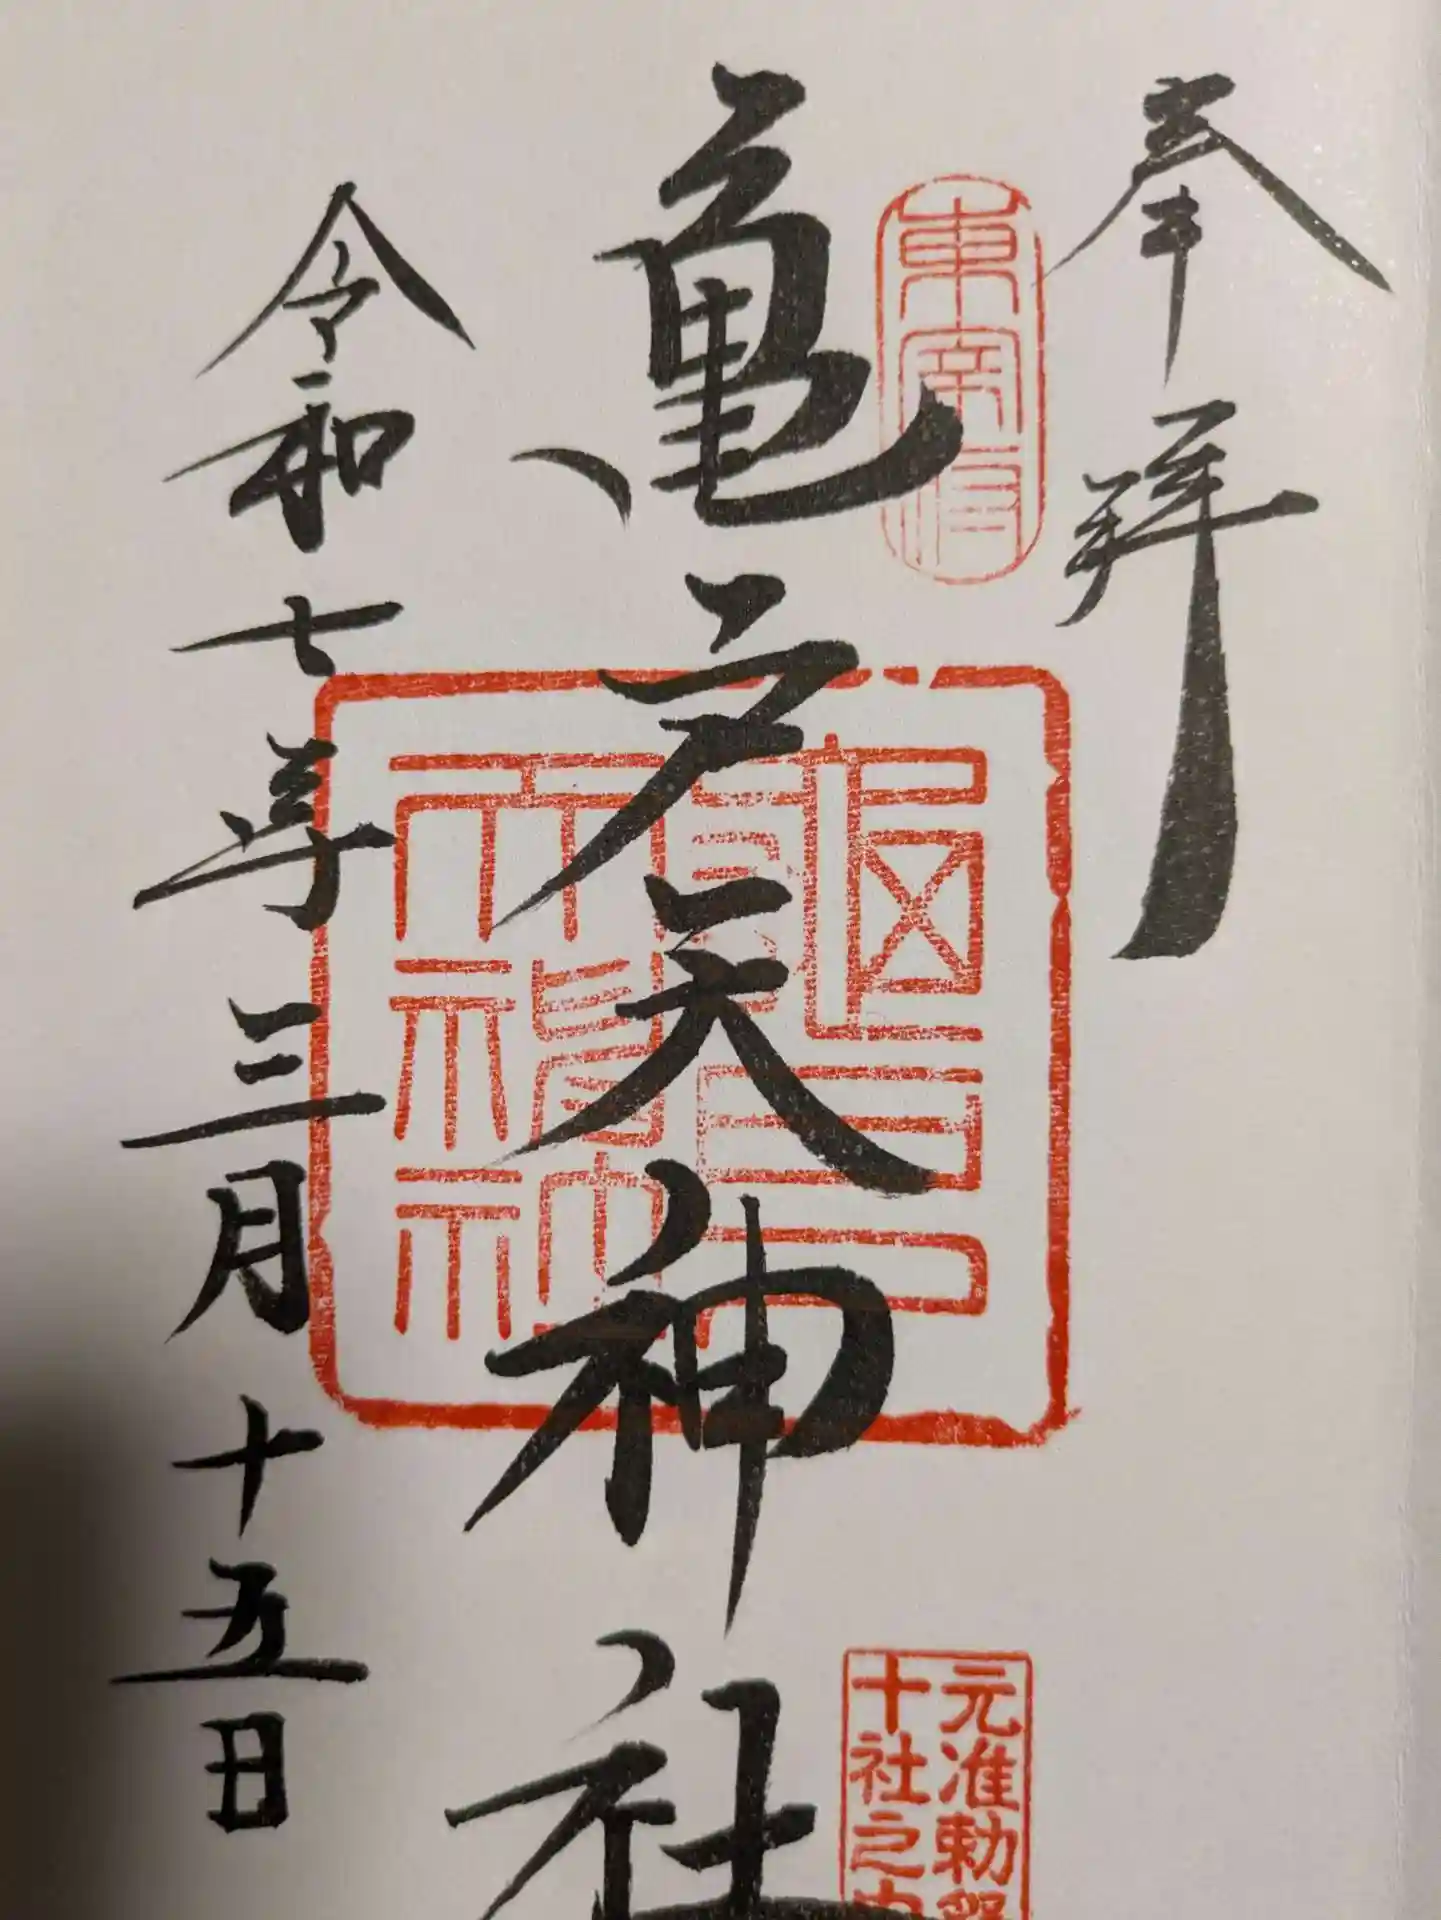 奉拝
東宰府
亀戸天神社
元准勅祭
十社之内
令和七年三月十五日